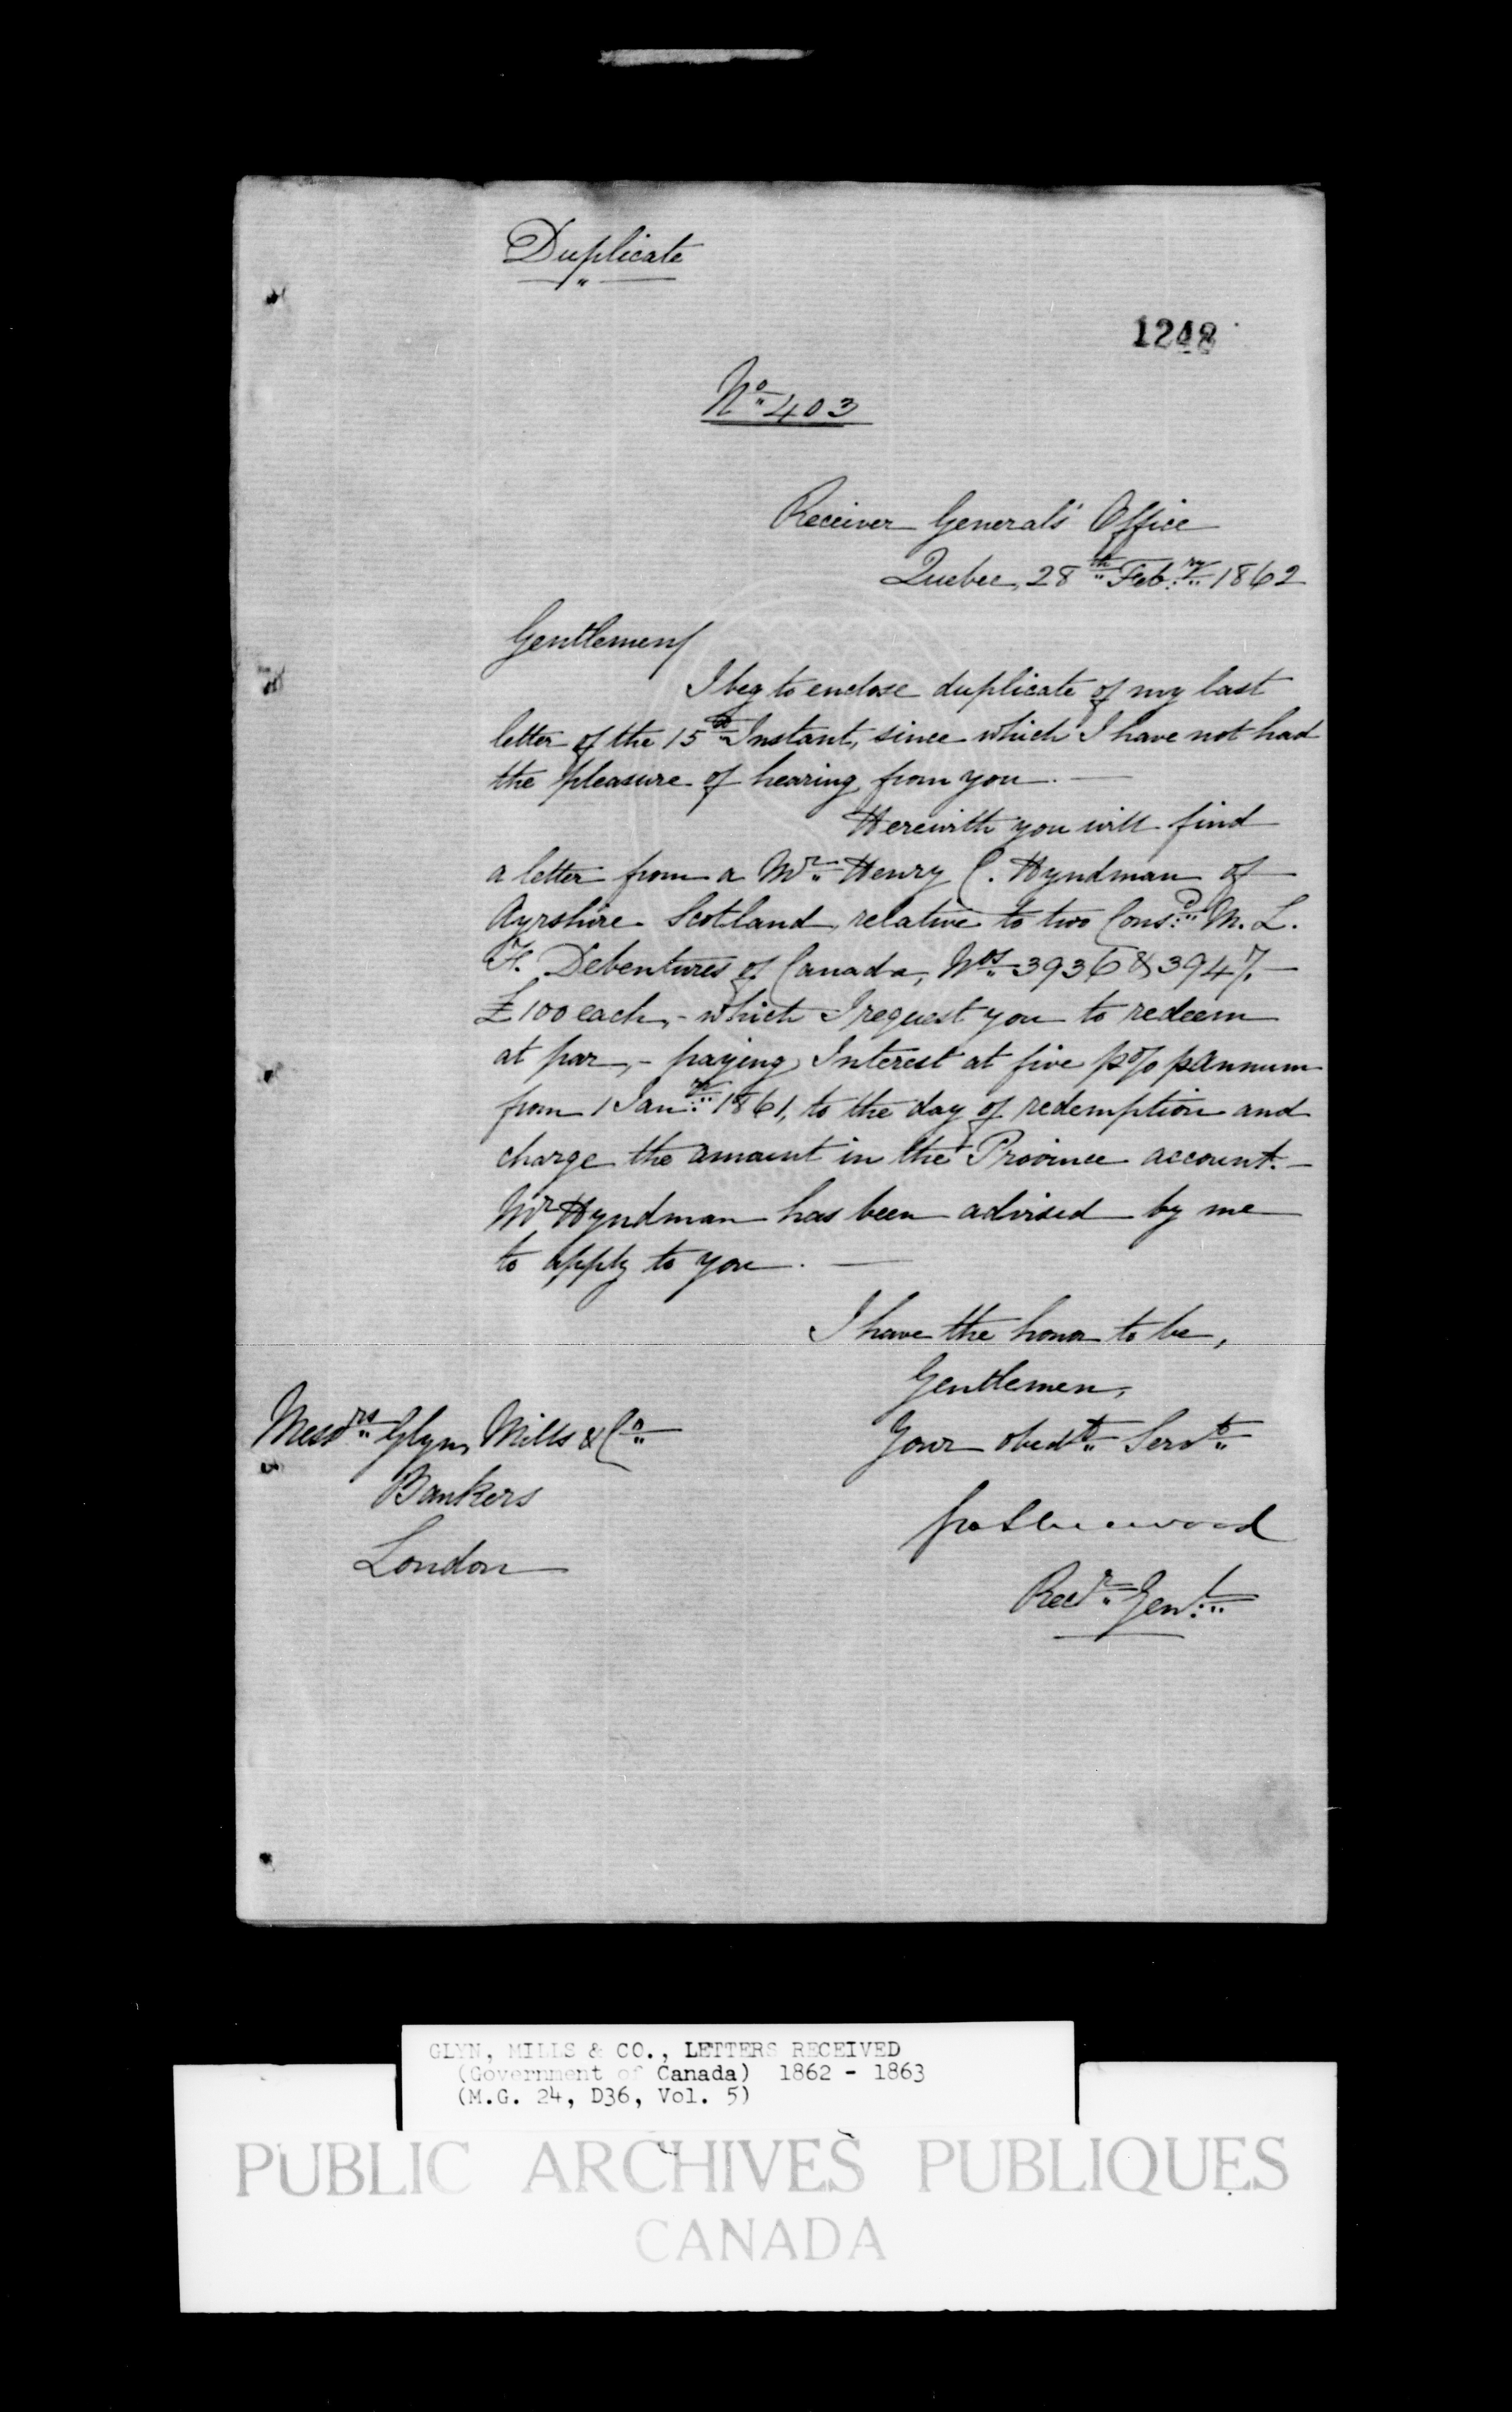 Duplicate
1248
No 403
Receiver Generals' Office
Quebec, 28th Feb:ry 1862
Gentlemen
I beg to enclose duplicate of my last
letter of the 15th Instant, since which I have not had
the pleasure of hearing from you. —
Herewith you will find
a letter from a Mr Henry C. Hyndman of
Ayrshire Scotland, relative to two Cons:d M. L.
F. Debentures of Canada, Nos 3936 & 3947. —
£100 each, - which I request you to redeem
at par, - paying Interest at five p% pAnnum
from 1 Jan:ry 1861, to the day of redemption and
charge the amount in the Province account. —
Mr Hyndman has been advised by me
to apply to you. —
I have the honor to be,
Gentlemen,
Your obedt Servt
Messrs Glyn, Mills & Co
Bankers
London
Recr Gen:l
GLYN, MILLS & CO., LETTERS RECEIVED
(Government of Canada) 1862 - 1863
(M.G. 24, D36, Vol. 5)
PUBLIC ARCHIVES PUBLIQUES
CANADA